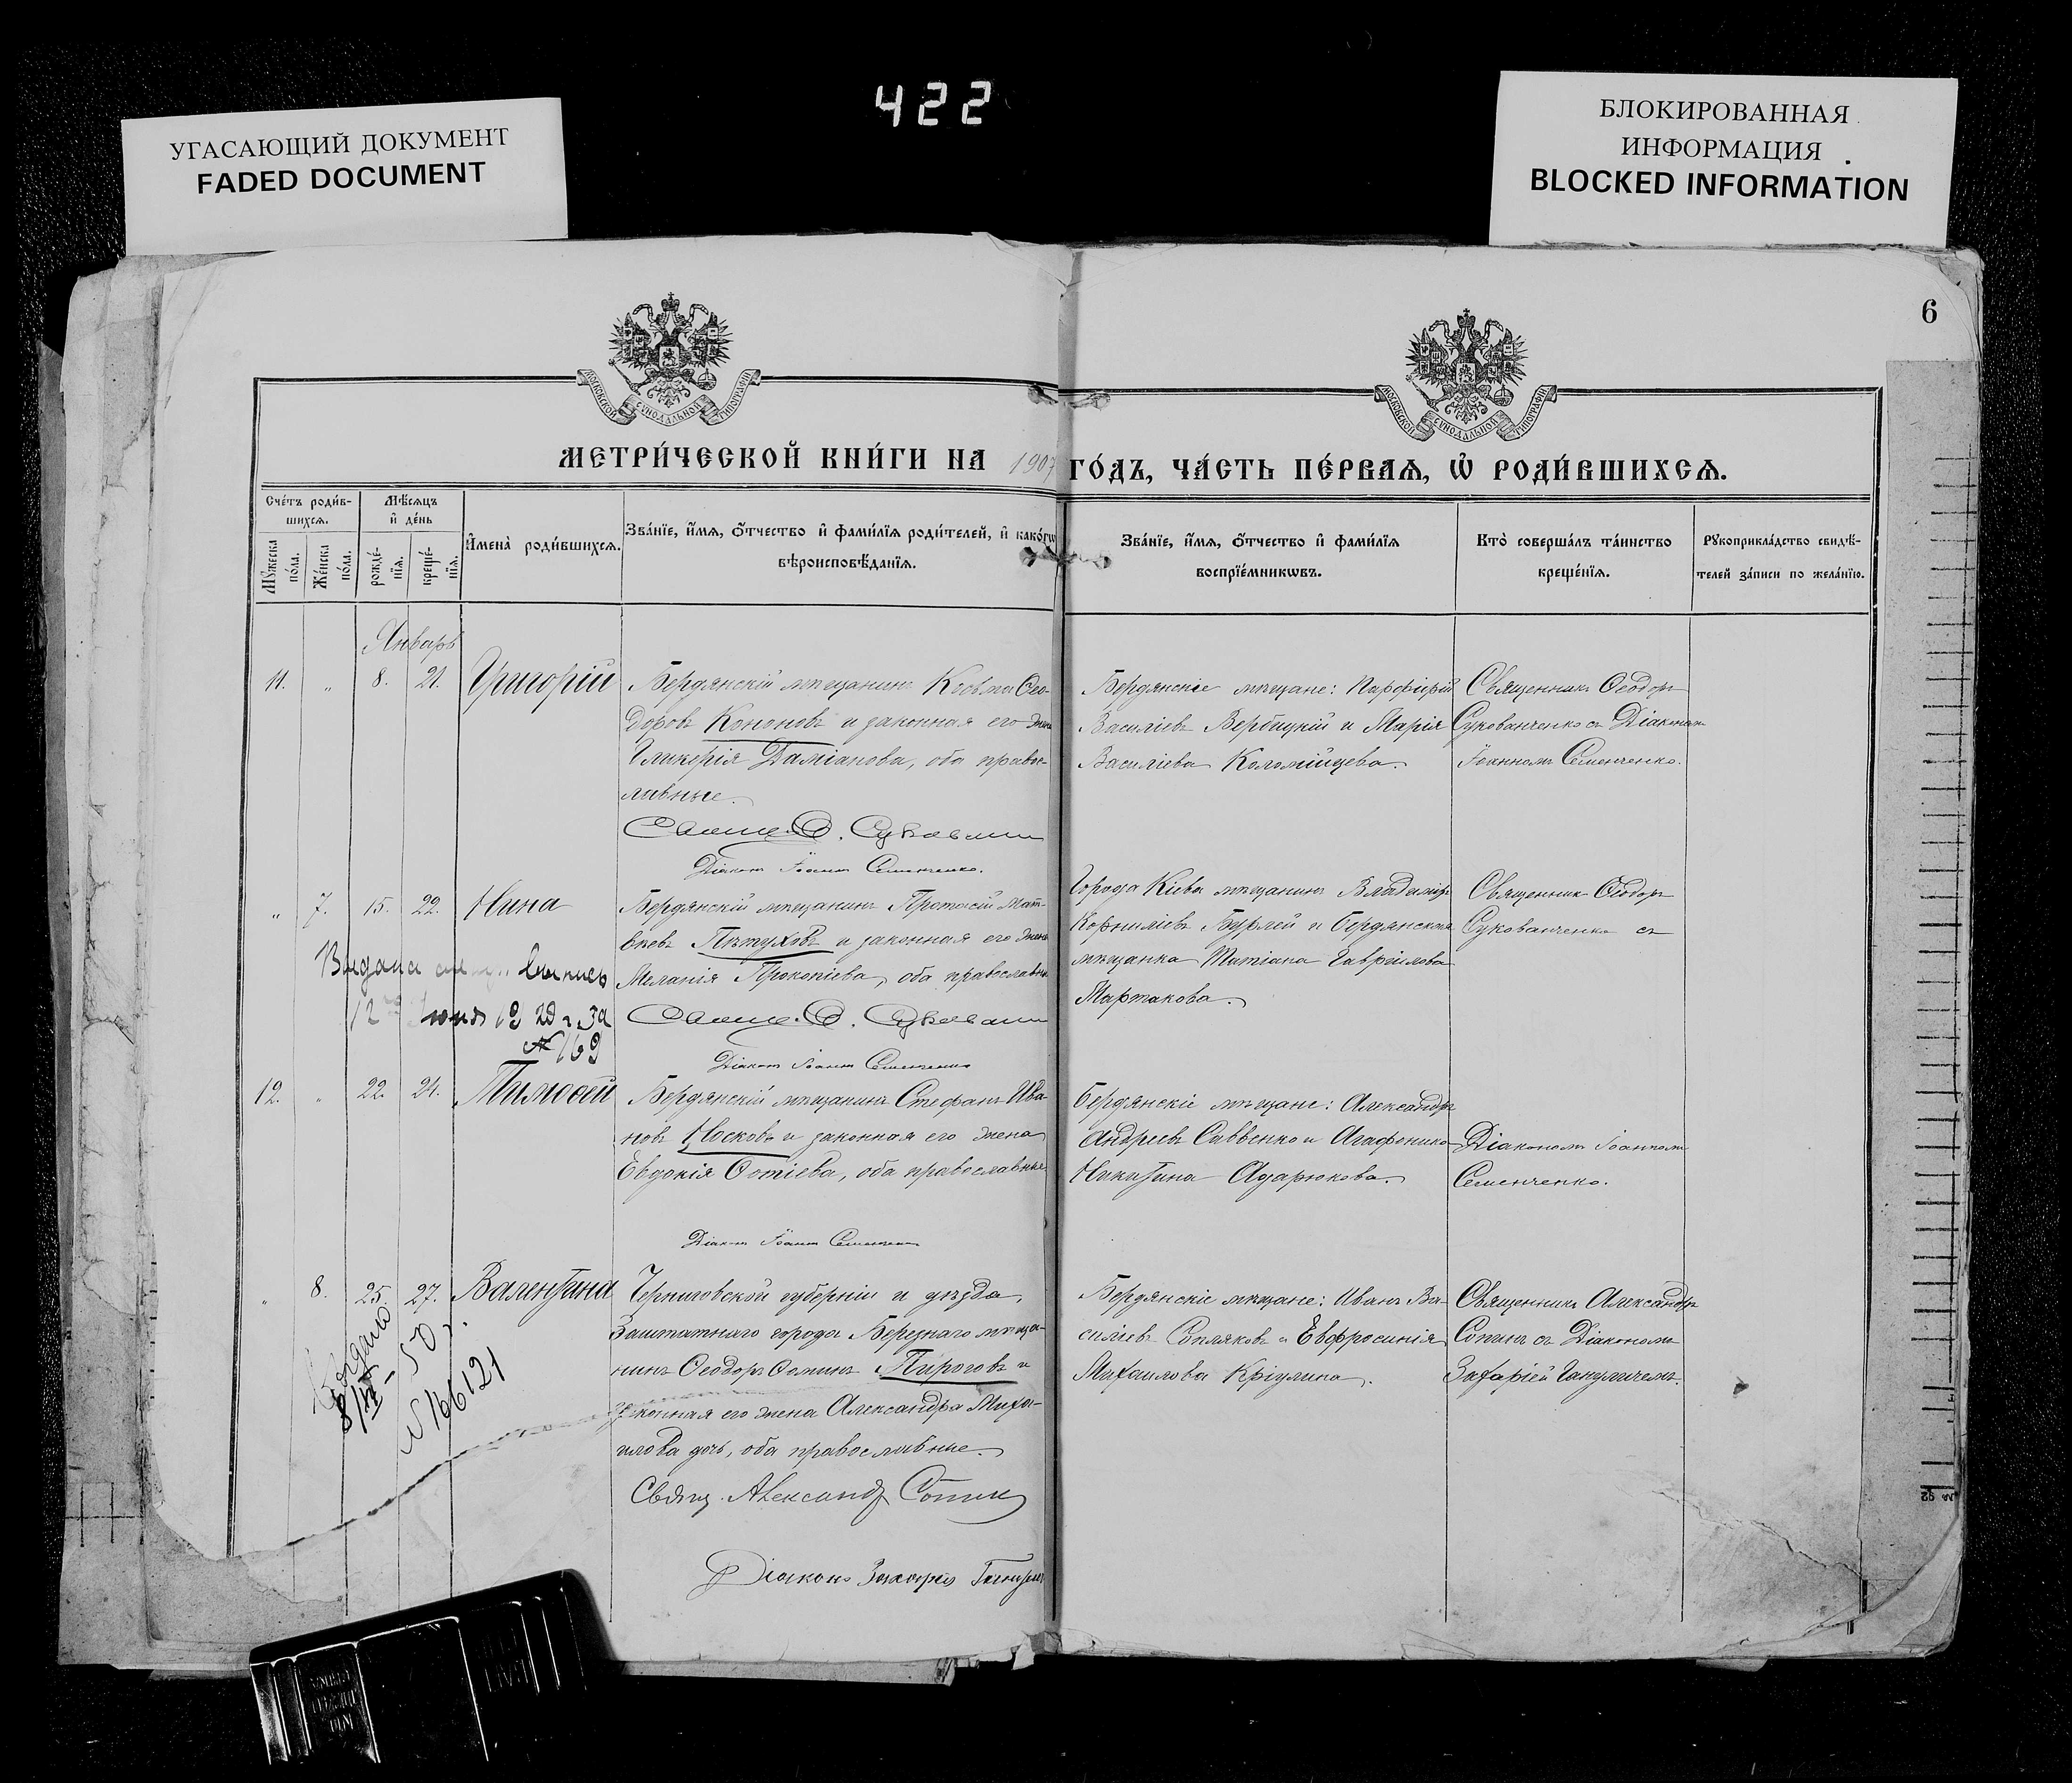 422
УГАСАЮЩИЙ ДОКУМЕНТ
FADED DOCUMENT
БЛОКИРОВАННАЯ
ИНФОРМАЦИЯ
BLOCKED INFORMATION
6
МОСКОВСКОЙ СУНОДАЛЬНОЙ ТИПОГРАФІИ
МОСКОВСКОЙ СУНОДАЛЬНОЙ ТИПОГРАФІИ
МЕТРИ́ЧЕСКОЙ КНИ́ГИ НА 1907 ГО́ДЪ, ЧА́СТЬ ПЕ́РВАЯ, Ѡ҆ РОДИ́ВШИХСЯ.
Счётъ роди́вшихся.
Му́жеска по́ла.
Же́нска по́ла.
Мѣ́сяцъ и҆ де́нь
рожде́нїя.
креще́нїя.
И҆мена̀ роди́вшихся.
Зва́нїе, и҆́мя, ѻ҆́тчество и҆ фами́лїя роди́телей, и҆ како́гѡ
вѣроисповѣ́данїя.
Зва́нїе, и҆́мя, ѻ҆́тчество и҆ фами́лїя
воспрїе́мникѡвъ.
Кто̀ соверша́лъ та́инство
креще́нїя.
Рꙋкоприкла́дство свидѣ́-
телей за́писи по жела́нїю.
Январь
11. „ 8. 21. Григорій
Бердянскій мѣщанинъ Косма Ѳео-
доровъ Кононовъ и законная его жена
Гликерія Даміанова, оба право-
славные.
Діаконъ Іоаннъ Семенченко.
Бердянскіе мѣщане: Парфирій
Василіевъ Вербицкій и Марія
Василіева Коломійцева.
Священникъ Ѳеодоръ
Сукованченко съ Діакономъ
Іоанномъ Семенченко.
„ 7. 15. 22. Нина
Бердянскій мѣщанинъ Протасій Мат-
ѳіевъ Пѣтуховъ и законная его жена
Меланія Прокопіева, оба православные
Діаконъ Іоаннъ Семенченко
Города Кіева мѣщанинъ Владиміръ
Корниліевъ Бурлей и бердянская
мѣщанка Татіана Гавріилова
Мартакова.
Священникъ Ѳеодоръ
Сукованченко съ
Выдана
№ 169
12. „ 22. 24. Тимоѳей
Бердянскій мѣщанинъ Стефанъ Ива-
новъ Носковъ и законная его жена
Евдокія Фотіева, оба православные
Діаконъ Іоаннъ Семенченко
Бердянскіе мѣщане: Александръ
Андреевъ Саввенко и Агафоника
Никитина Азарюкова.
Діакономъ Іоанномъ
Семенченко.
„ 8. 25. 27. Валентина
Черниговской губерніи и уѣзда,
Заштатнаго города Березнаго мѣща-
нинъ Ѳеодоръ Ѳоминъ Пироговъ и
законная его жена Александра Миха-
илова дочь, оба православные.
Свящ. Александръ Сопинъ
Діаконъ Захарій
Бердянскіе мѣщане: Иванъ Ва-
силіевъ Сопляковъ и Евфросинія
Михаилова Кріулина.
Священникъ Александръ
Сопинъ съ Діакономъ
Захаріей Гануличемъ.
Выдано
8/VI-50 г.
№166121